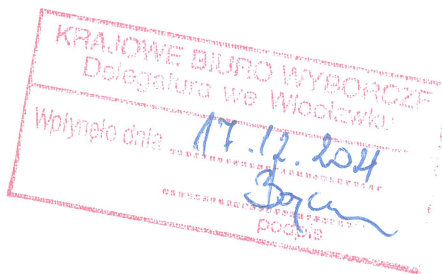 KRAJOWE BIURO WYBORCZE
Delegatura we Włocławku
Wpłynęło dnia 17.12.2024
podpis